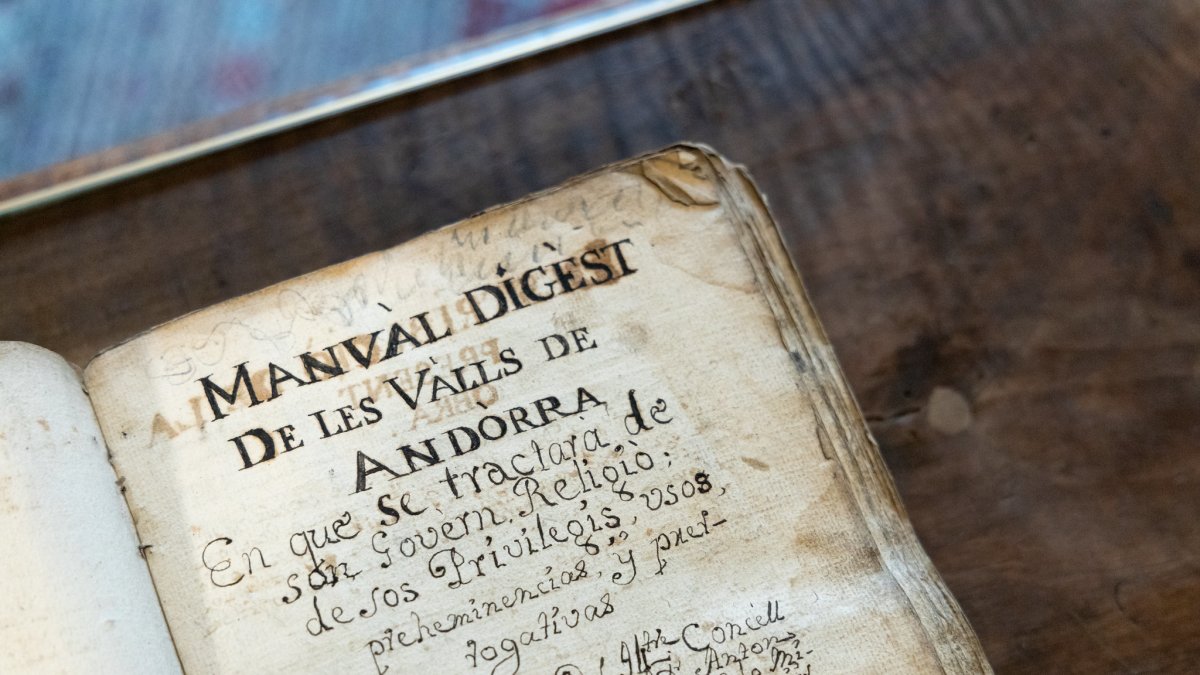 MANVÀL DIGÈST
DE LES VÀLLS DE
ANDÒRRA
En que se tractarà de
són Govern, Religiò;
de sos Privilegis, usos,
preheminencias, y prer-
rogativas
Concell
Anton